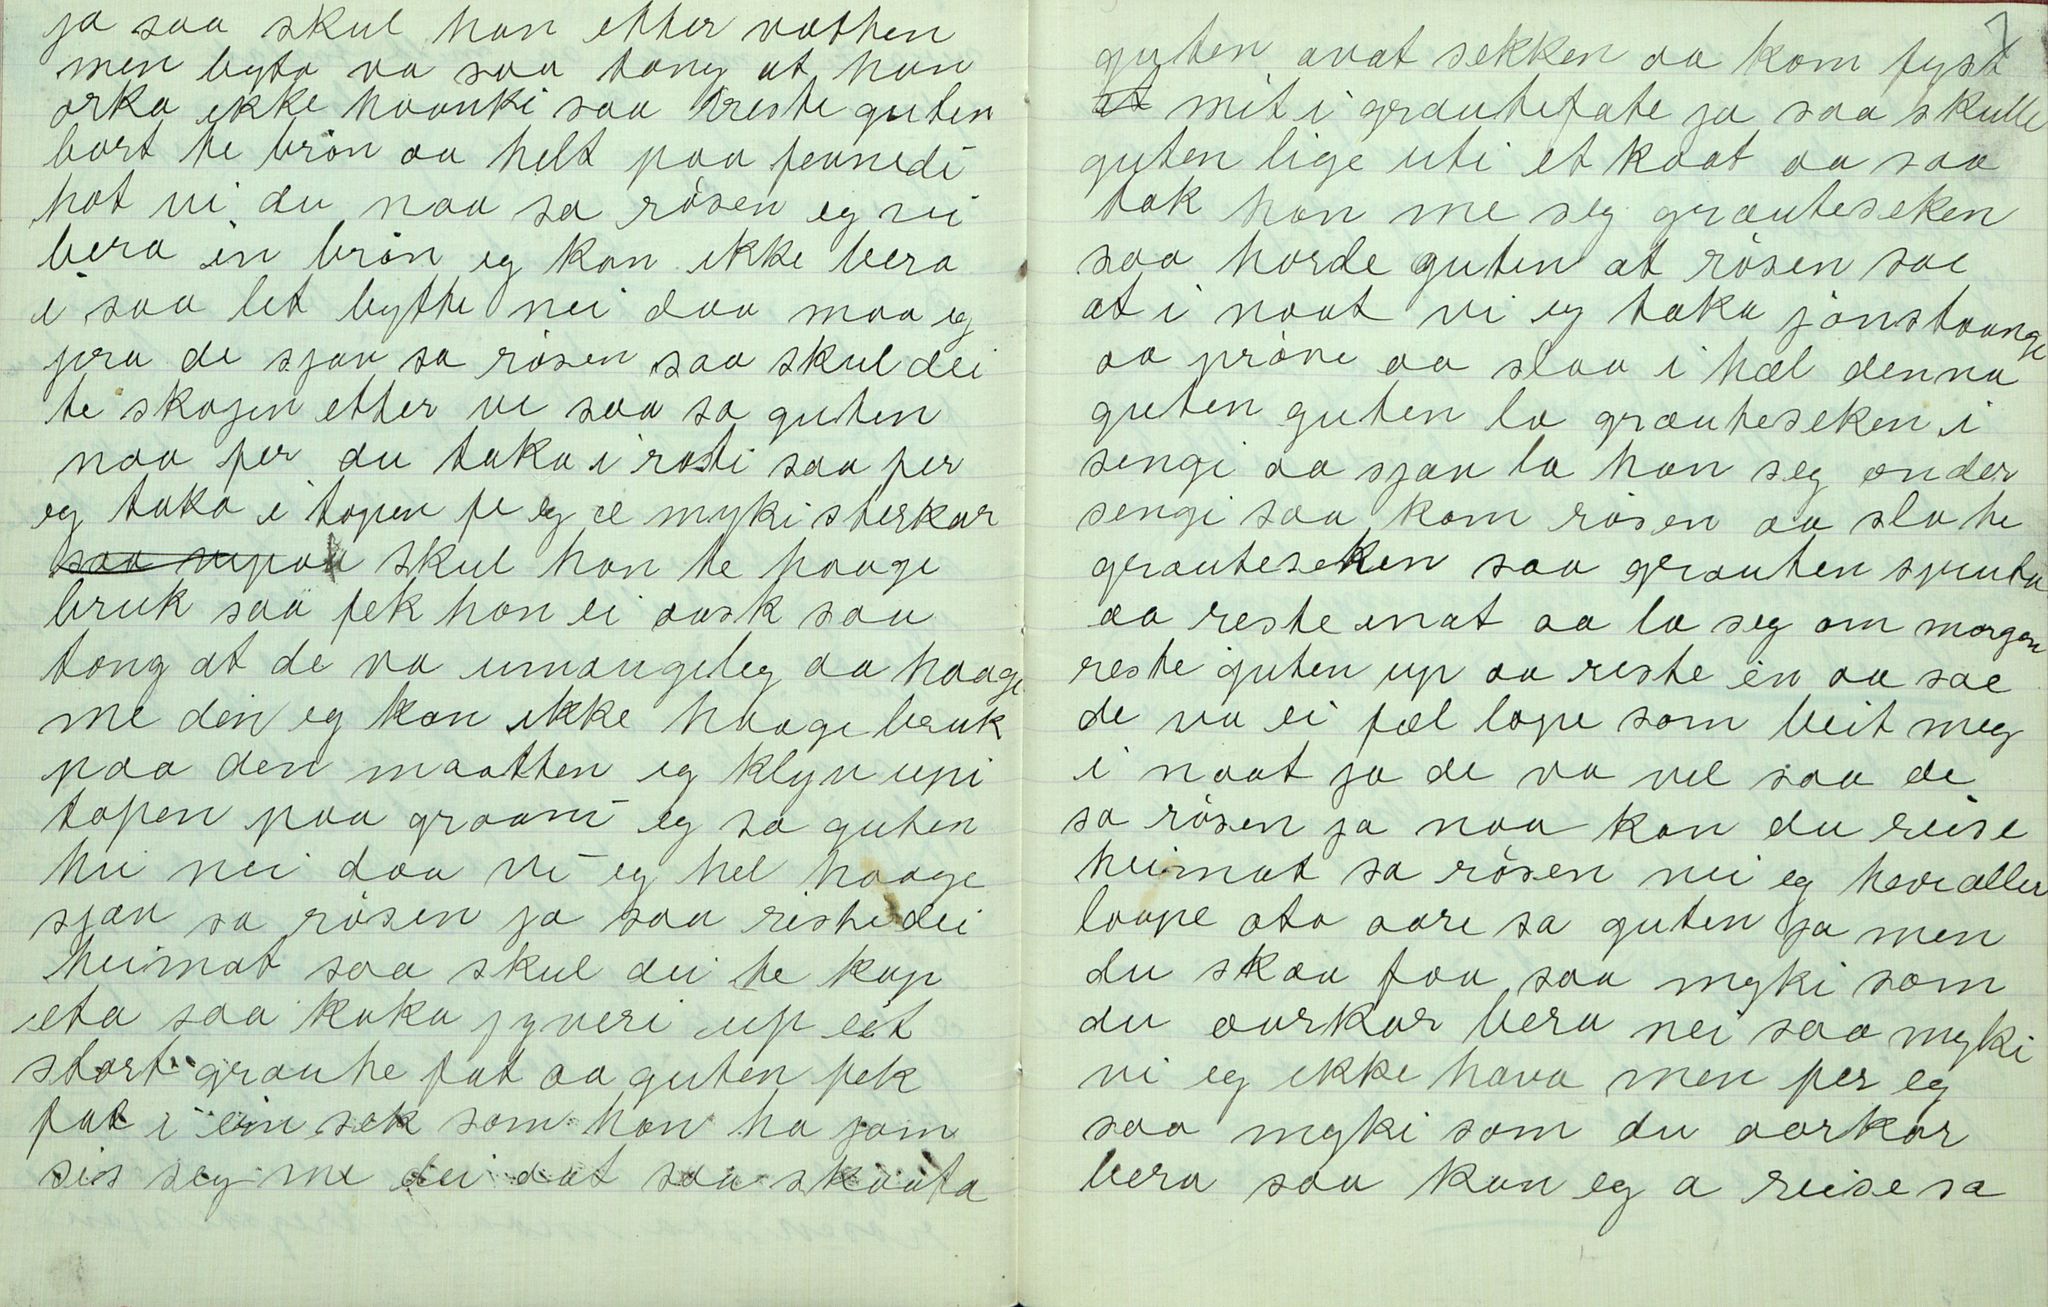 ja saa skul han etter vatten
men byta va saa tong at han
orka ikke haanki saa reste guten
bort te brön aa helt paa
hot vi du naa sa rösen eg vi
bera in brön eg kan ikke bera
i saa let bytte nei daa maa eg
jæra de sjøv sa rösen saa skul dei
te skogen etter ve saa sa guten
naa per du taka i roti saa per
eg taka i topen fe eg æ myki sterkar
skul han te haage
bruk saa fek han ei oask saa
tong at de va umaugeleg aa haage
me den eg kan ikke haage bruk
paa den maatten eg klyv upi
topen paa graani eg sa guten
hei nei daa vi eg hel haage
sjøv sa rösen ja saa reste dei
heimat saa skul dei te kap
eta saa koka jyveri up eit
stort graute fat aa guten fek
fat i ein sek som han ha jøm
sis seg me dei dat saa skaata
7
guten avat sekken aa kom fyst
mit i grautefate ja saa skulle
guten lige uti et kaat aa saa
tok han me seg grauteseken
saa horde guten at rösen sae
at i naat vi eg taka jönstaangi
aa pröve aa slaa i hæl denna
guten guten la grauteseken i
sengi aa sjøv la han seg onder
sengi saa kom rösen aa slo te
grauteseken saa grauten spruta
aa reste inat aa la seg om morgen
reste guten up aa reste in aa sae
de va ei fæl lope som beit meg
i naat ja de va vel saa de
sa rösen ja naa kan du reise
heimat sa rösen nei eg have aller
loape ota aare sa guten ja men
du skaa faa saa myki som
du oarkar bera nei saa myki
vi eg ikke hava men per eg
saa myki som du aarkar
bera saa kan eg a reise sa